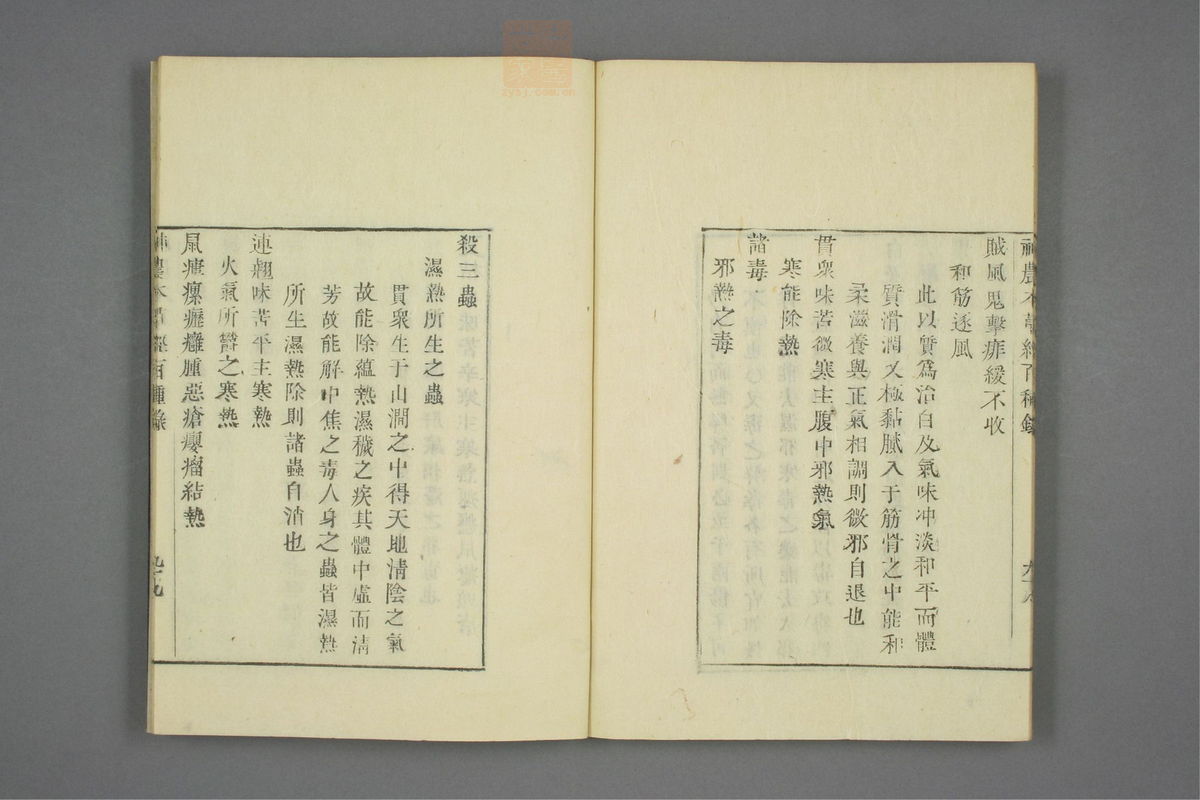 神農本草經百種錄
九八
賊風鬼擊痱緩不收
和筋逐風
此以質爲治白及氣味冲淡和平而體
質滑潤又極黏膩入于筋骨之中能和
柔滋養與正氣相調則微邪自退也
貫衆味苦微寒主腹中邪熱氣
寒能除熱
諸毒
邪熱之毒
殺三蟲
濕熱所生之蟲
貫衆生于山澗之中得天地淸陰之氣
故能除蘊熱濕穢之疾其體中虛而淸
芳故能解中焦之毒人身之蟲皆濕熱
所生濕熱除則諸蟲自消也
連翹味苦平主寒熱
火氣所鬱之寒熱
鼠瘻瘰癧癰腫惡瘡癭瘤結熱
神農本草經百種錄
九九
zysj.com.cn